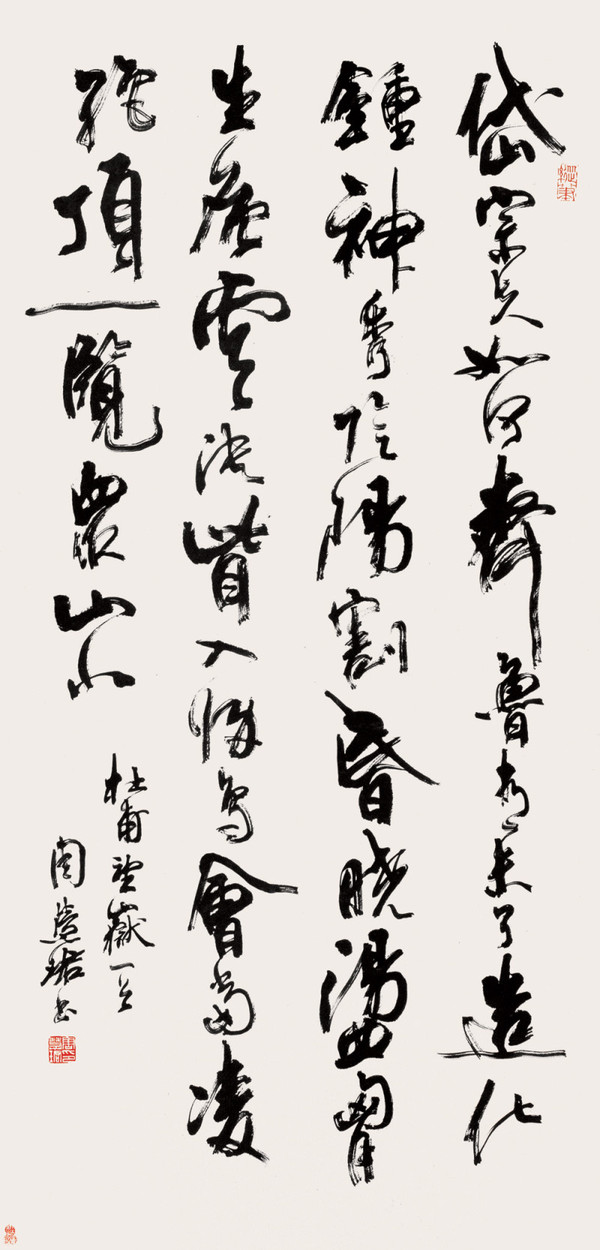 岱宗夫如何齊魯青未了造化
鍾神秀陰陽割昏曉盪胷
生層雲決眥入歸鳥會當凌
絕頂一覽眾山小
杜甫望嶽一首
周慧珺書